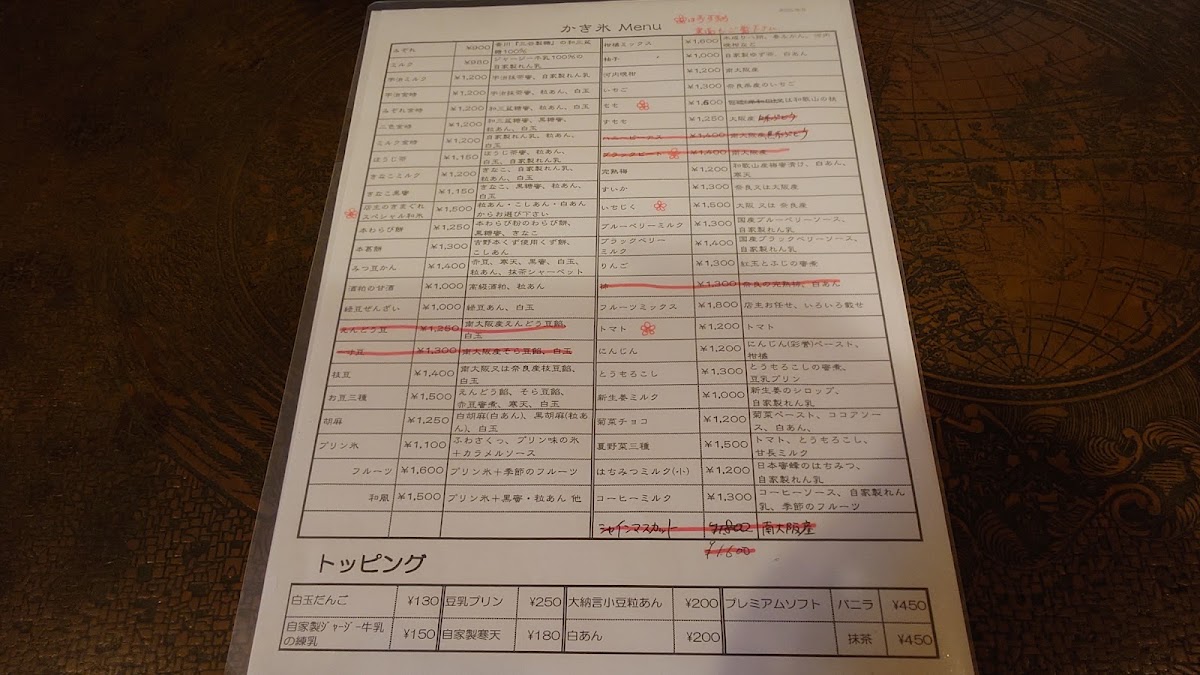 かき氷 Menu
みぞれ ¥900 春日「三谷製糖」の和三盆糖100%
ミルク ¥950 ジャージー牛乳100%の自家製れん乳
宇治ミルク ¥1,200 宇治抹茶蜜、自家製れん乳
宇治金時 ¥1,200 宇治抹茶蜜、粒あん、白玉
みぞれ金時 ¥1,200 和三盆糖蜜、粒あん、白玉
三色金時 ¥1,200 和三盆糖蜜、黒糖蜜、粒あん、白玉
ミルク金時 ¥1,200 自家製れん乳、粒あん、白玉
ほうじ茶 ¥1,150 ほうじ茶蜜、粒あん、白玉、自家製れん乳
きなこミルク ¥1,200 きなこ、自家製れん乳、粒あん、白玉
きなこ黒蜜 ¥1,150 きなこ、黒糖蜜、粒あん、白玉
店主のきまぐれスペシャル和氷 ¥1,500 粒あん・こしあん・白あんからお選び下さい
本わらび餅 ¥1,250 本わらび粉のわらび餅、黒糖蜜、きなこ
本葛餅 ¥1,300 吉野本くず使用くず餅、こしあん
みつ豆かん ¥1,400 赤豆、寒天、黒蜜、白玉、粒あん、抹茶シャーベット
酒粕の甘酒 ¥1,000 高級酒粕、粒あん
緑豆ぜんざい ¥1,000 緑豆あん、白玉
えんどう豆 ¥1,250 南大阪産えんどう豆餡、白玉
一寸豆 ¥1,300 南大阪産そら豆餡、白玉
枝豆 ¥1,400 南大阪又は奈良産枝豆餡、白玉
お豆三種 ¥1,500 えんどう餡、そら豆餡、赤豆蜜煮、寒天、白玉
胡麻 ¥1,250 白胡麻(白あん)、黒胡麻(粒あん)、白玉
プリン氷 ¥1,100 ふわさくっ、プリン味の氷+カラメルソース
フルーツ ¥1,600 プリン氷+季節のフルーツ
和風 ¥1,500 プリン氷+黒蜜・粒あん 他
柑橘ミックス ¥1,600
柚子 ¥1,000 自家製ゆず茶、白あん
河内晩柑 ¥1,200 南大阪産
いちご ¥1,300 奈良県産のいちご
モモ ¥1,600 又は和歌山の桃
すモモ ¥1,250 大阪産
ハニービーナス ¥1,400 南大阪産
ブラックビート ¥1,400 南大阪産
完熟梅 ¥1,200 和歌山産梅蜜漬け、白あん、寒天
すいか ¥1,300 奈良又は大阪産
いちじく ¥1,500 大阪 又は 奈良産
ブルーベリーミルク ¥1,300 国産ブルーベリーソース、自家製れん乳
ブラックベリーミルク ¥1,400 国産ブラックベリーソース、自家製れん乳
りんご ¥1,300 紅玉とふじの蜜煮
柿 ¥1,300 奈良の完熟柿、白あん
フルーツミックス ¥1,800 店主お任せ、いろいろ載せ
トマト ¥1,200 トマト
にんじん ¥1,200 にんじん(彩誉)ペースト、柑橘
とうもろこし ¥1,300 とうもろこしの蜜煮、豆乳プリン
新生姜ミルク ¥1,000 新生姜のシロップ、自家製れん乳
菊菜チョコ ¥1,200 菊菜ペースト、ココアソース、白あん、
夏野菜三種 ¥1,500 トマト、とうもろこし、甘長ミルク
はちみつミルク(小) ¥1,200 日本蜜蜂のはちみつ、自家製れん乳
コーヒーミルク ¥1,300 コーヒーソース、自家製れん乳、季節のフルーツ
シャインマスカット ¥1,800 南大阪産
¥1,600
トッピング
白玉だんご ¥130 豆乳プリン ¥250 大納言小豆粒あん ¥200 プレミアムソフト バニラ ¥450
自家製ジャージー牛乳の練乳 ¥150 自家製寒天 ¥180 白あん ¥200 抹茶 ¥450